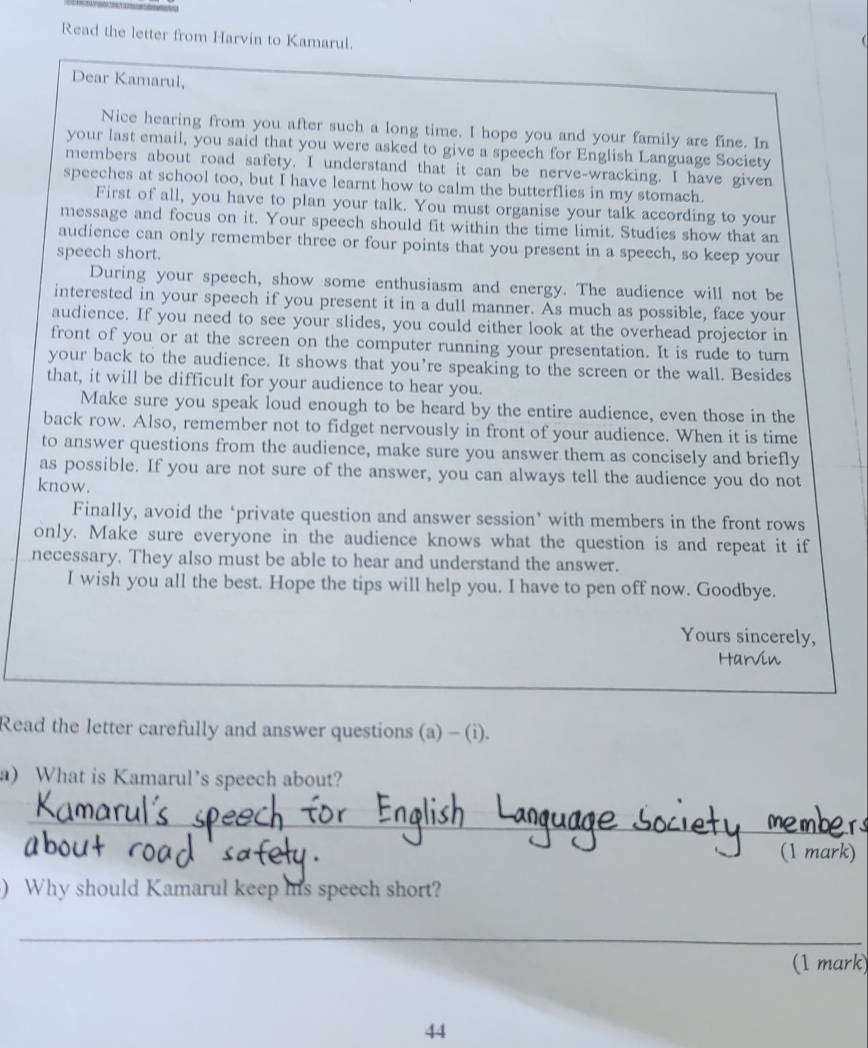 Read the letter from Harvin to Kamarul.
Dear Kamarul,
Nice hearing from you after such a long time. I hope you and your family are fine. In
your last email, you said that you were asked to give a speech for English Language Society
members about road safety. I understand that it can be nerve-wracking. I have given
speeches at school too, but I have learnt how to calm the butterflies in my stomach.
First of all, you have to plan your talk. You must organise your talk according to your
message and focus on it. Your speech should fit within the time limit. Studies show that an
audience can only remember three or four points that you present in a speech, so keep your
speech short.
During your speech, show some enthusiasm and energy. The audience will not be
interested in your speech if you present it in a dull manner. As much as possible, face your
audience. If you need to see your slides, you could either look at the overhead projector in
front of you or at the screen on the computer running your presentation. It is rude to turn
your back to the audience. It shows that you're speaking to the screen or the wall. Besides
that, it will be difficult for your audience to hear you.
Make sure you speak loud enough to be heard by the entire audience, even those in the
back row. Also, remember not to fidget nervously in front of your audience. When it is time
to answer questions from the audience, make sure you answer them as concisely and briefly
as possible. If you are not sure of the answer, you can always tell the audience you do not
know.
Finally, avoid the 'private question and answer session' with members in the front rows
only. Make sure everyone in the audience knows what the question is and repeat it if
necessary. They also must be able to hear and understand the answer.
I wish you all the best. Hope the tips will help you. I have to pen off now. Goodbye.
Yours sincerely,
Harvin
Read the letter carefully and answer questions (a) – (i).
a) What is Kamarul's speech about?
Kamarul's speech for English Language Society members
about road safety.
(1 mark)
) Why should Kamarul keep his speech short?
(1 mark)
44